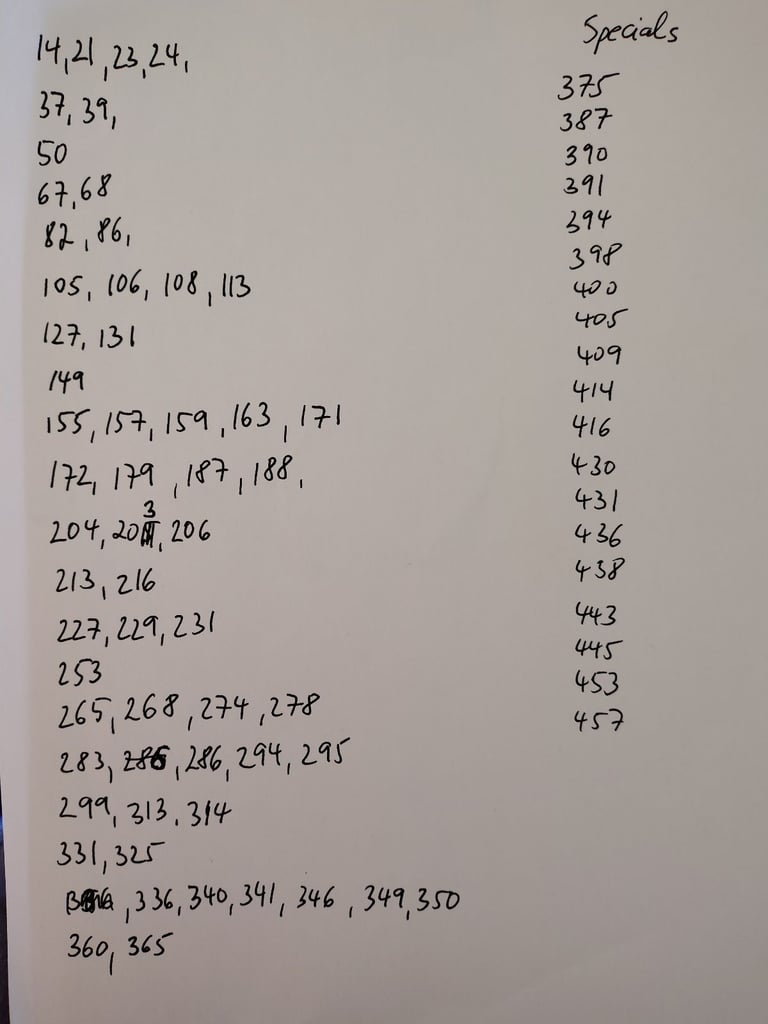 14, 21, 23, 24,
37, 39,
50
67, 68
82, 86,
105, 106, 108, 113
127, 131
149
155, 157, 159, 163, 171
172, 179, 187, 188,
204, 203, 206
213, 216
227, 229, 231
253
265, 268, 274, 278
283, 286, 294, 295
299, 313, 314
331, 325
, 336, 340, 341, 346, 349, 350
360, 365
Specials
375
387
390
391
394
398
400
405
409
414
416
430
431
436
438
443
445
453
457